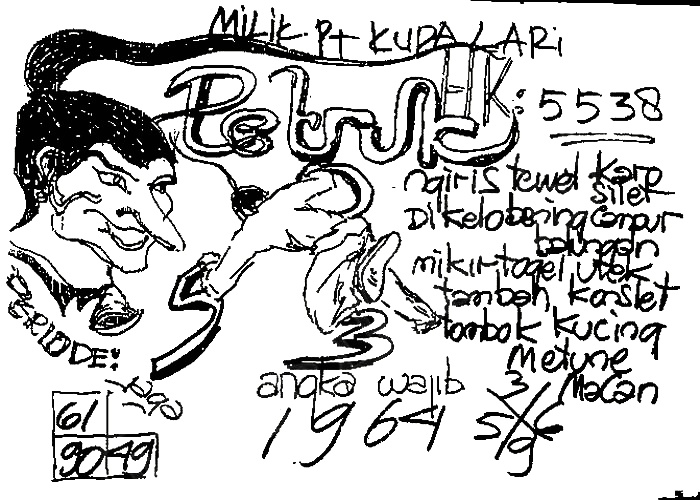 MILIK PT KUDA LARI
HK: 5538
ngiris tewel karo
silet
Di kelo bening campur
balungan
mikir togel utek
tambah konslet
tombok kucing
Metune
Macan
PERIODE:
5
3
angka wajib
1964
3
5/6
9
61
90 49